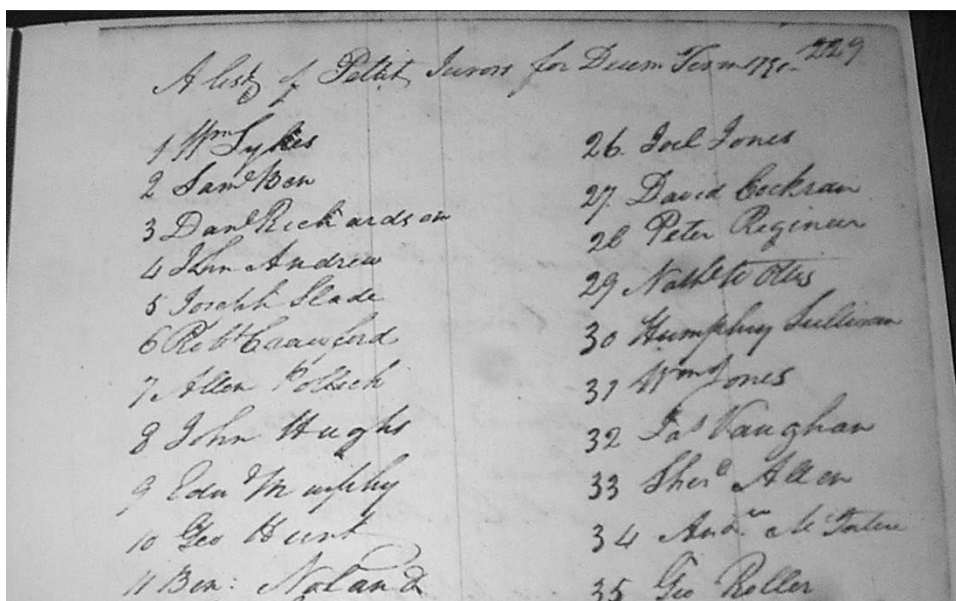 A list of Pettit Jurors for Decem Term 179 229
1 Wm Sykes
2 Saml Ben
3 Danl Richardson
4 John Andrew
5 Joseph Slade
6 Robt Crawford
7 Allen Pollock
8 John Hughs
9 Edwd Murphy
10 Geo Hunt
11 Ben: Noland
26. Joel Jones
27 David Cockran
28 Peter Regineer
29 Otis
30 Humphry Sullivan
31 Wm Jones
32 Jas Vaughan
33 Sherd Allen
34 Andw
35 Geo Roller